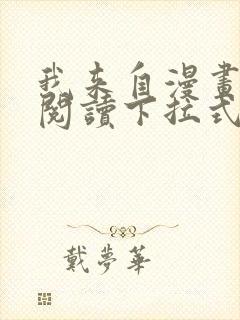 我来自漫畫
閱讀下拉式
戴夢華